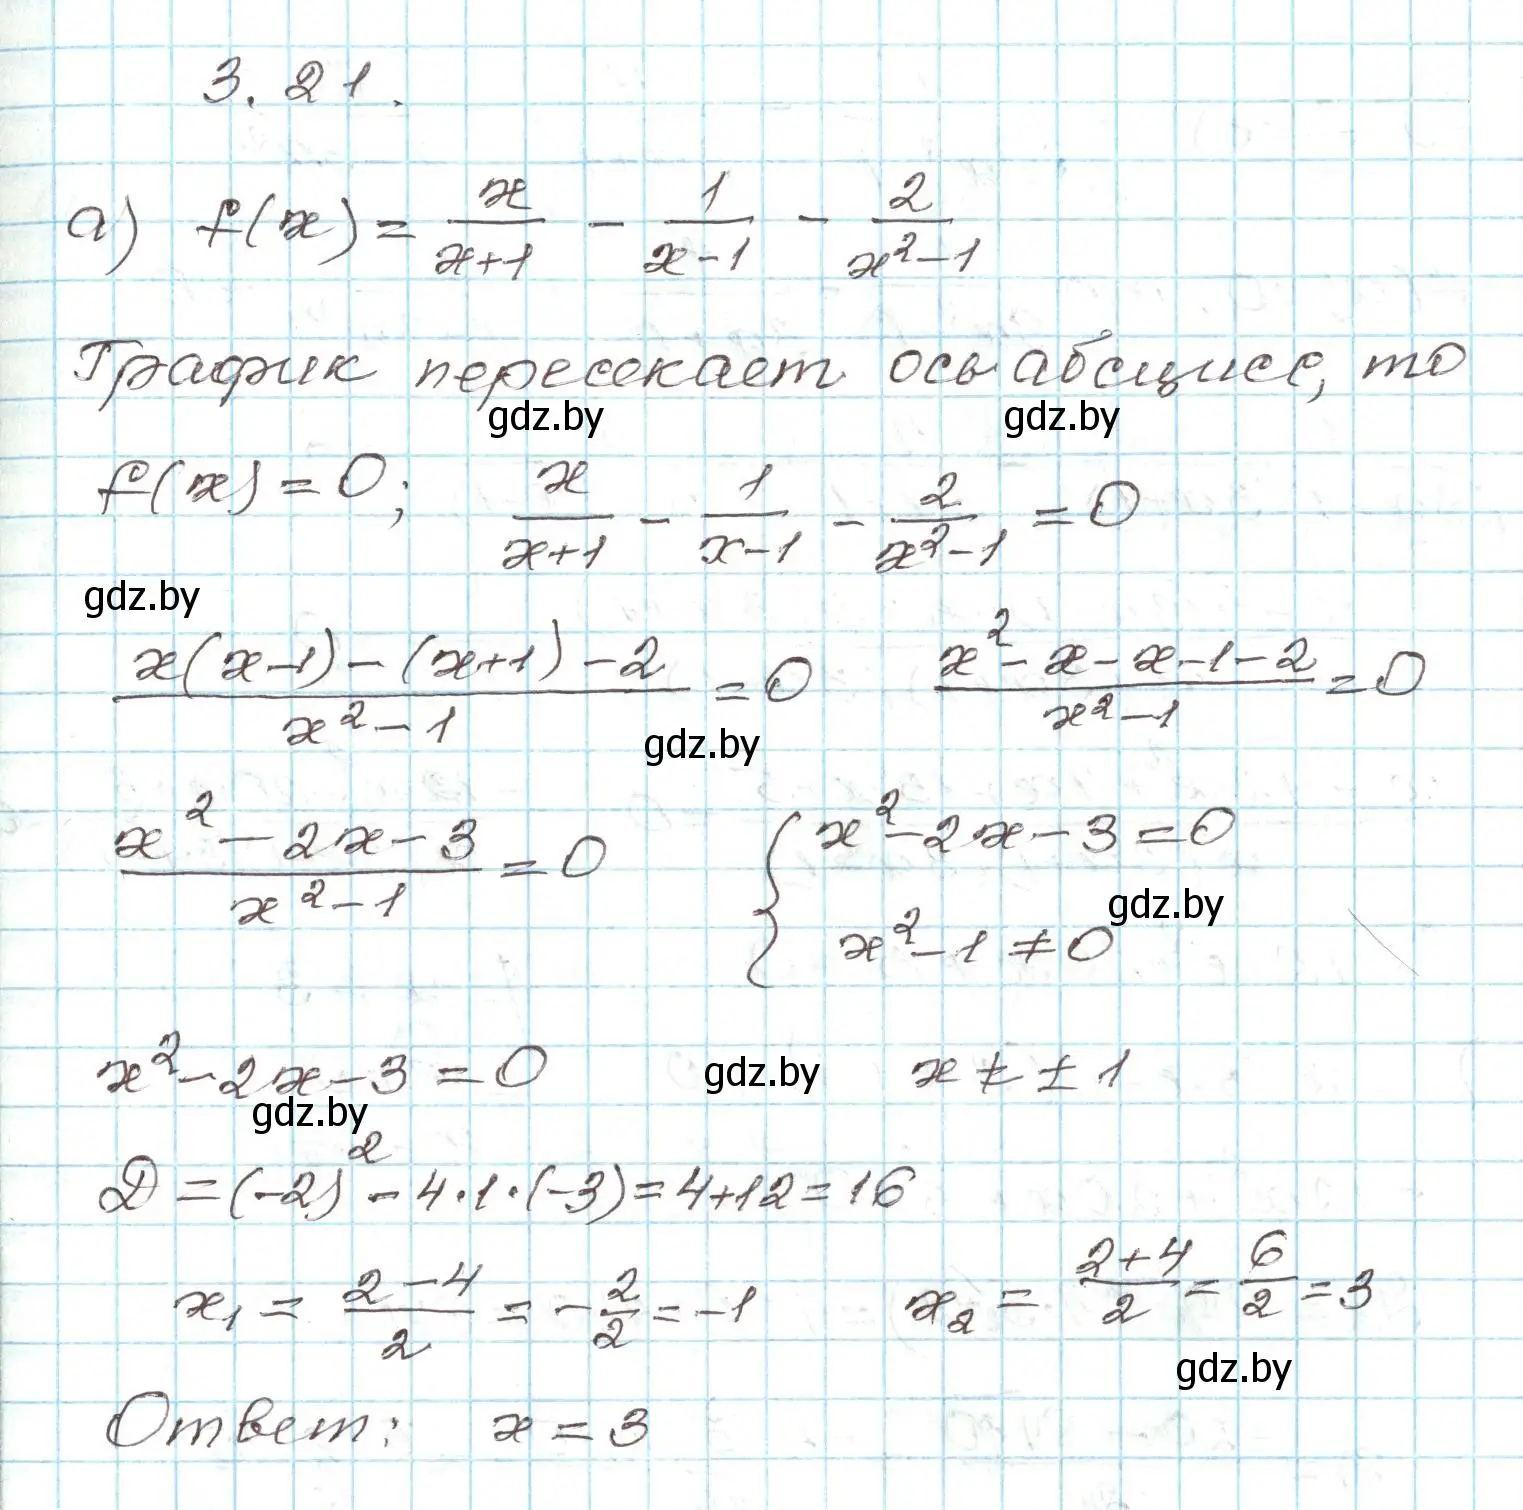 3.21.
а) f(x) = x/(x+1) - 1/(x-1) - 2/(x²-1)
График пересекает ось абсцисс, то
gdz.by gdz.by
f(x) = 0; x/(x+1) - 1/(x-1) - 2/(x²-1) = 0
gdz.by
(x(x-1) - (x+1) - 2)/(x²-1) = 0 (x² - x - x - 1 - 2)/(x²-1) = 0
gdz.by
(x² - 2x - 3)/(x²-1) = 0 { x² - 2x - 3 = 0
gdz.by
x² - 1 ≠ 0
x² - 2x - 3 = 0 gdz.by x ≠ ±1
gdz.by
D = (-2)² - 4·1·(-3) = 4+12 = 16
x₁ = (2-4)/2 = -2/2 = -1 x₂ = (2+4)/2 = 6/2 = 3
gdz.by
Ответ: x = 3